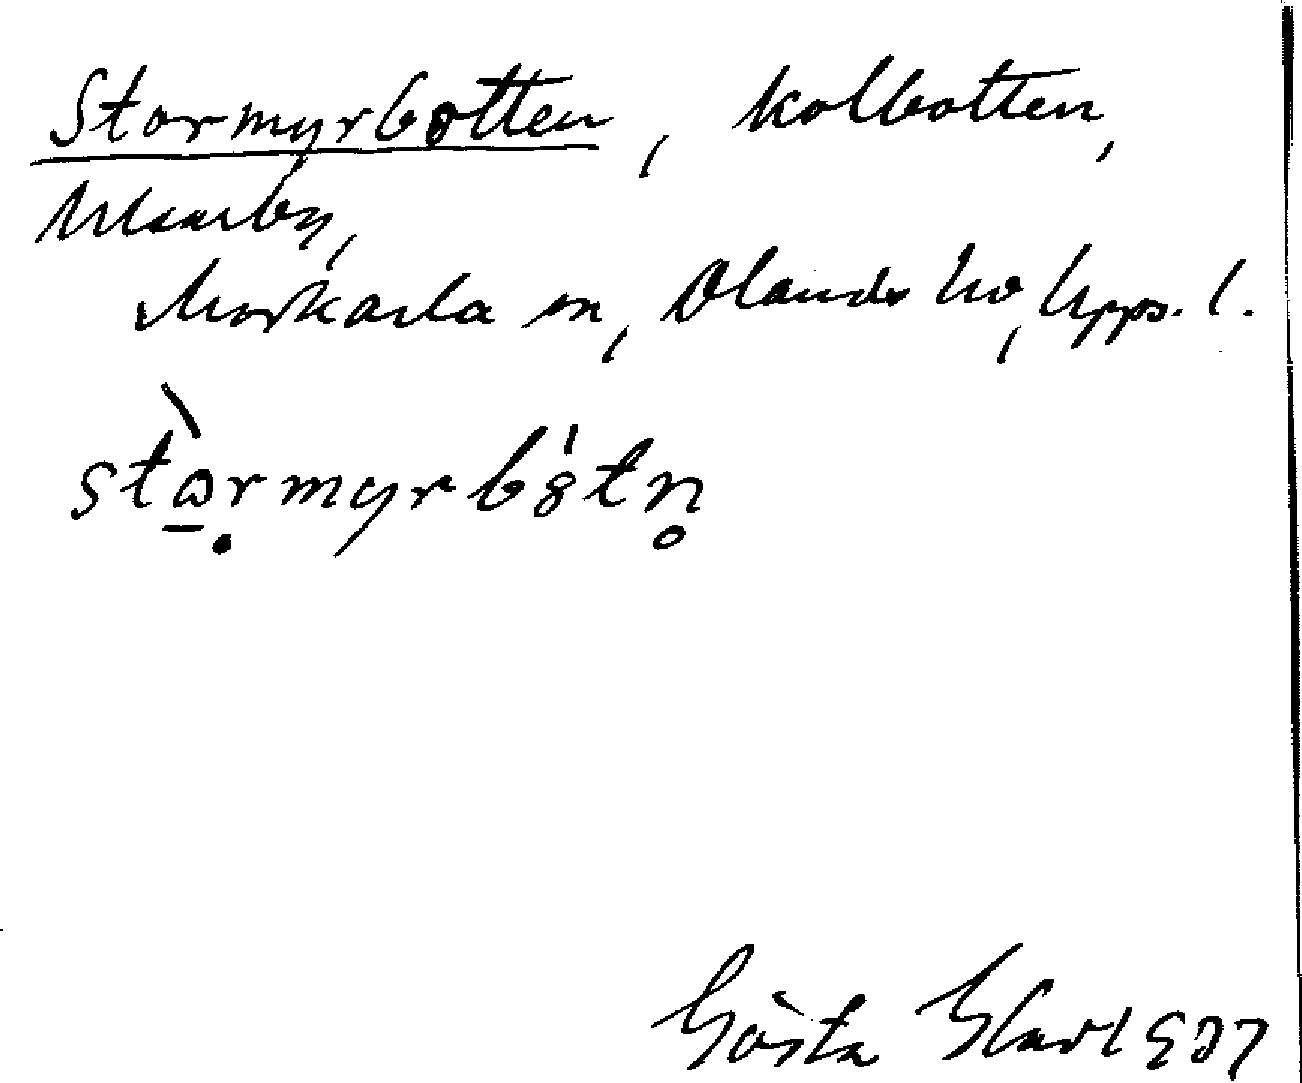 Stormyrbotten, kolbotten,
Ulvarby,
Morkarla sn, Olands hd, Upps. l.
stωrmyrbòtn̥
Gösta 1937